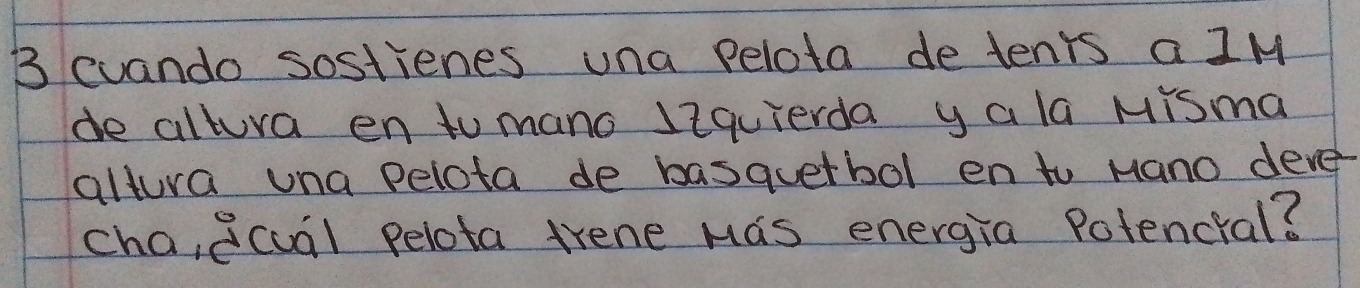 3 cuando sostienes una pelota de tenis a 1M
de altura en tu mano izquierda y a la misma
altura una pelota de basquetbol en tu mano dere-
cha, ¿cuál pelota tiene más energía potencial?